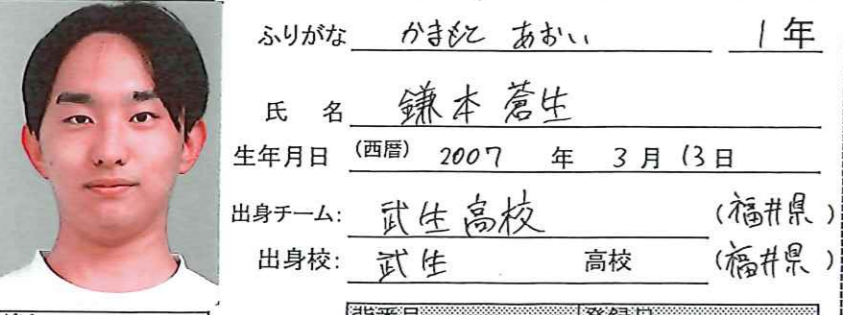 ふりがな かまもと あおい 1年
氏 名 鎌本 蒼生
生年月日 (西暦) 2007 年 3月 13日
出身チーム: 武生高校 (福井県)
出身校: 武生 高校 (福井県)
背番号 登録日